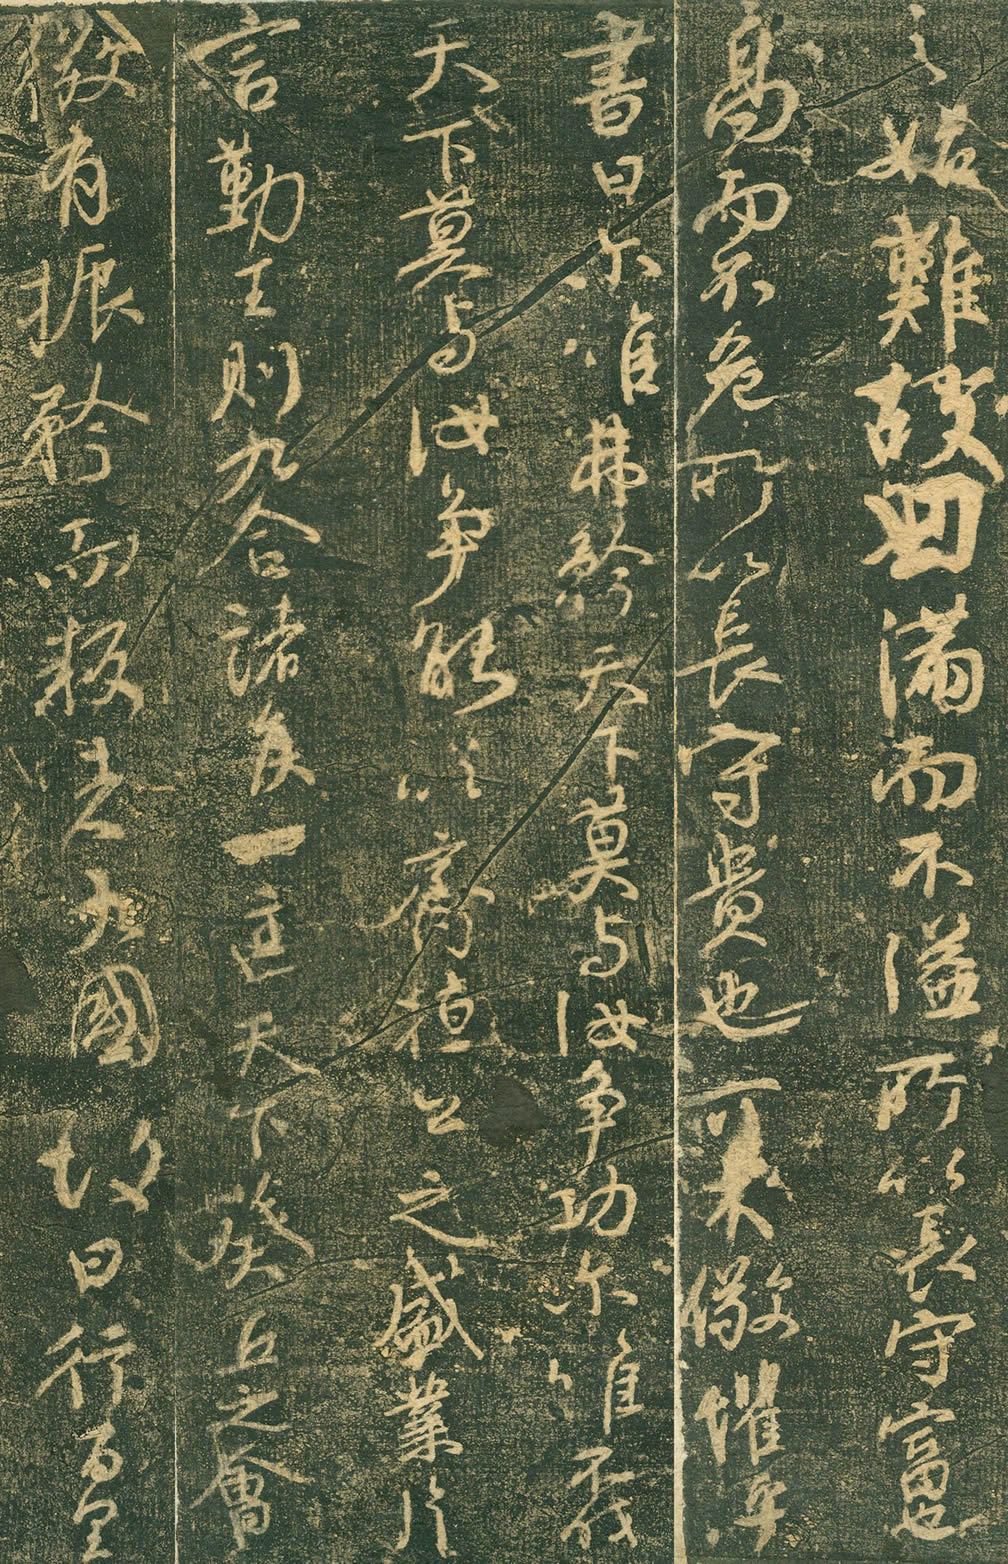 之始難故曰滿而不溢所以長守富也
高而不危所以長守貴也可不儆懼乎
書曰尔唯弗矜天下莫与汝爭功尔唯不伐
天下莫与汝爭能以齊桓公之盛業片
言勤王則九合諸侯一匡天下葵丘之會
微有振矜而叛者九國故曰行百里